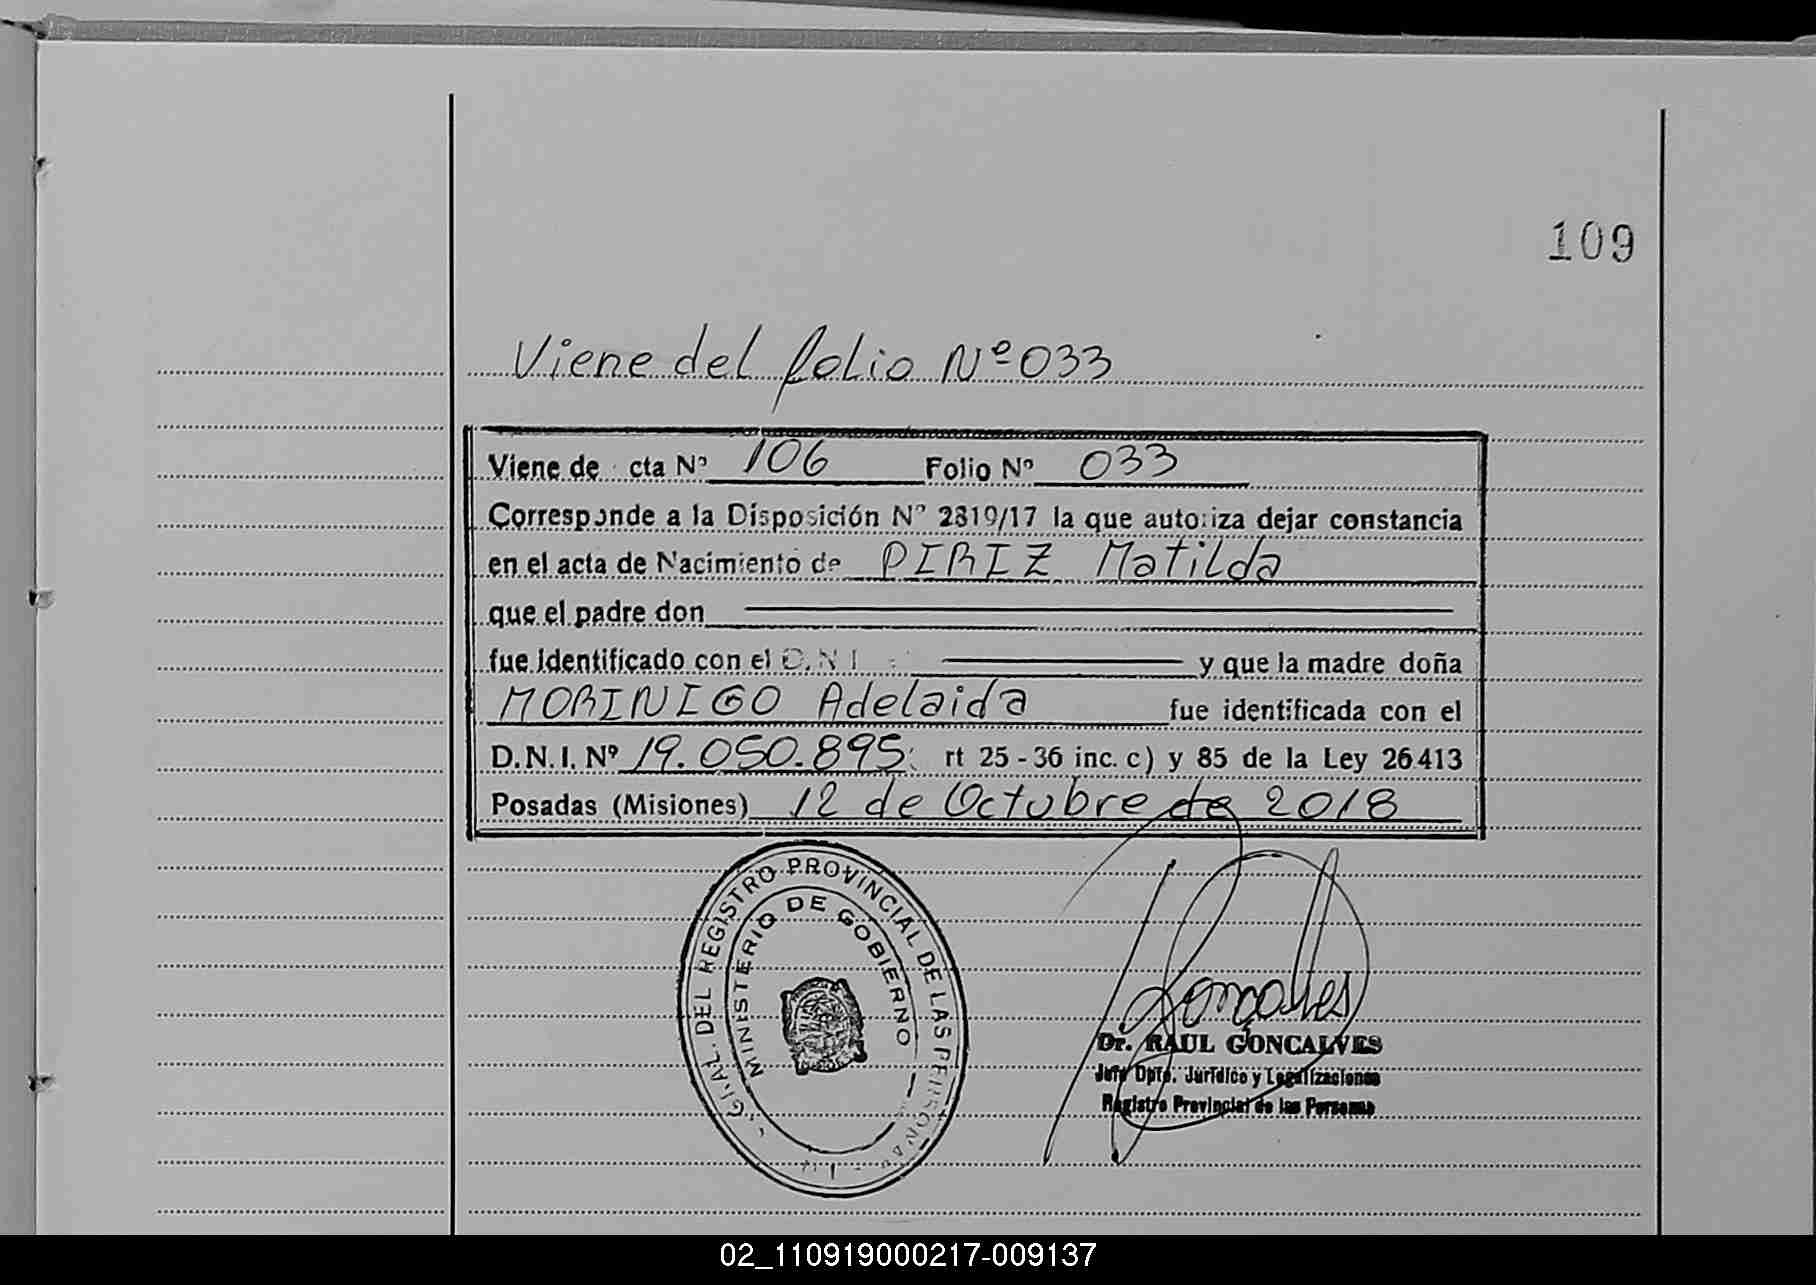 109
Viene del folio Nº 033
Viene de cta Nº 106 Folio Nº 033
Corresponde a la Disposición Nº 2819/17 la que autoriza dejar constancia
en el acta de Nacimiento de PIRIZ Matilda
que el padre don
fue identificado con el D.N.I. y que la madre doña
MORINIGO Adelaida fue identificada con el
D.N.I. Nº 19.050.895 rt 25-36 inc. c) y 85 de la Ley 26413
Posadas (Misiones) 12 de Octubre de 2018
GRAL. DEL REGISTRO PROVINCIAL DE LAS PERSONAS
MINISTERIO DE GOBIERNO
Gonçalves
Dr. RAUL GONCALVES
Jefe Dpto. Jurídico y Legalizaciones
Registro Provincial de las Personas
02_110919000217-009137